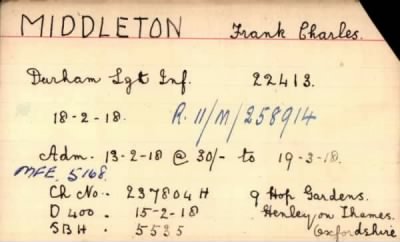 MIDDLETON Frank Charles.
Durham Lgt Inf. 22413.
18-2-18. R.11/M/258914
Adm. 13-2-18 @ 30/- to 19-3-18.
MFE. 5168.
Ch No. - 237804 H 9 Hop Gardens.
D 400. - 15-2-18 Henley on Thames.
SBH. - 5535 Oxfordshire